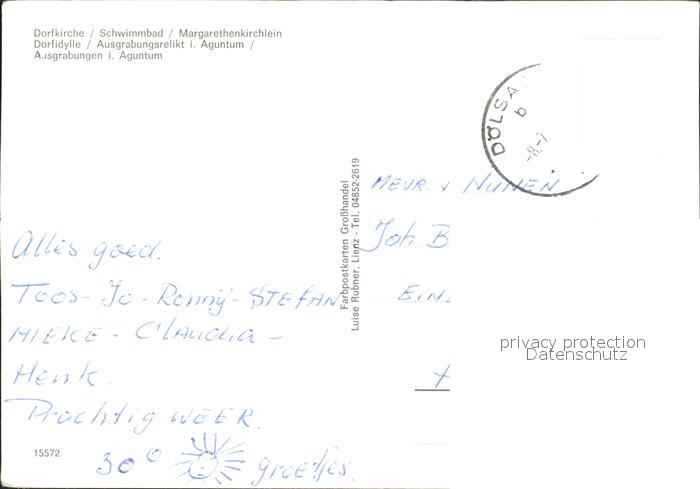 Dorfkirche / Schwimmbad / Margarethenkirchlein
Dorfidylle / Ausgrabungsrelikt i. Aguntum /
Ausgrabungen i. Aguntum
DÖLSA
b
-8.-7
Farbpostkarten Großhandel
Luise Rubner, Lienz - Tel. 04852-2619
MEVR. v NUNEN
Joh. B
EIN
privacy protection
Datenschutz
Alles goed.
Toos - Jo - Ronny - STEFAN
MIEKE - Claudia -
Henk.
Prachtig WEER.
30° groetjes.
15572